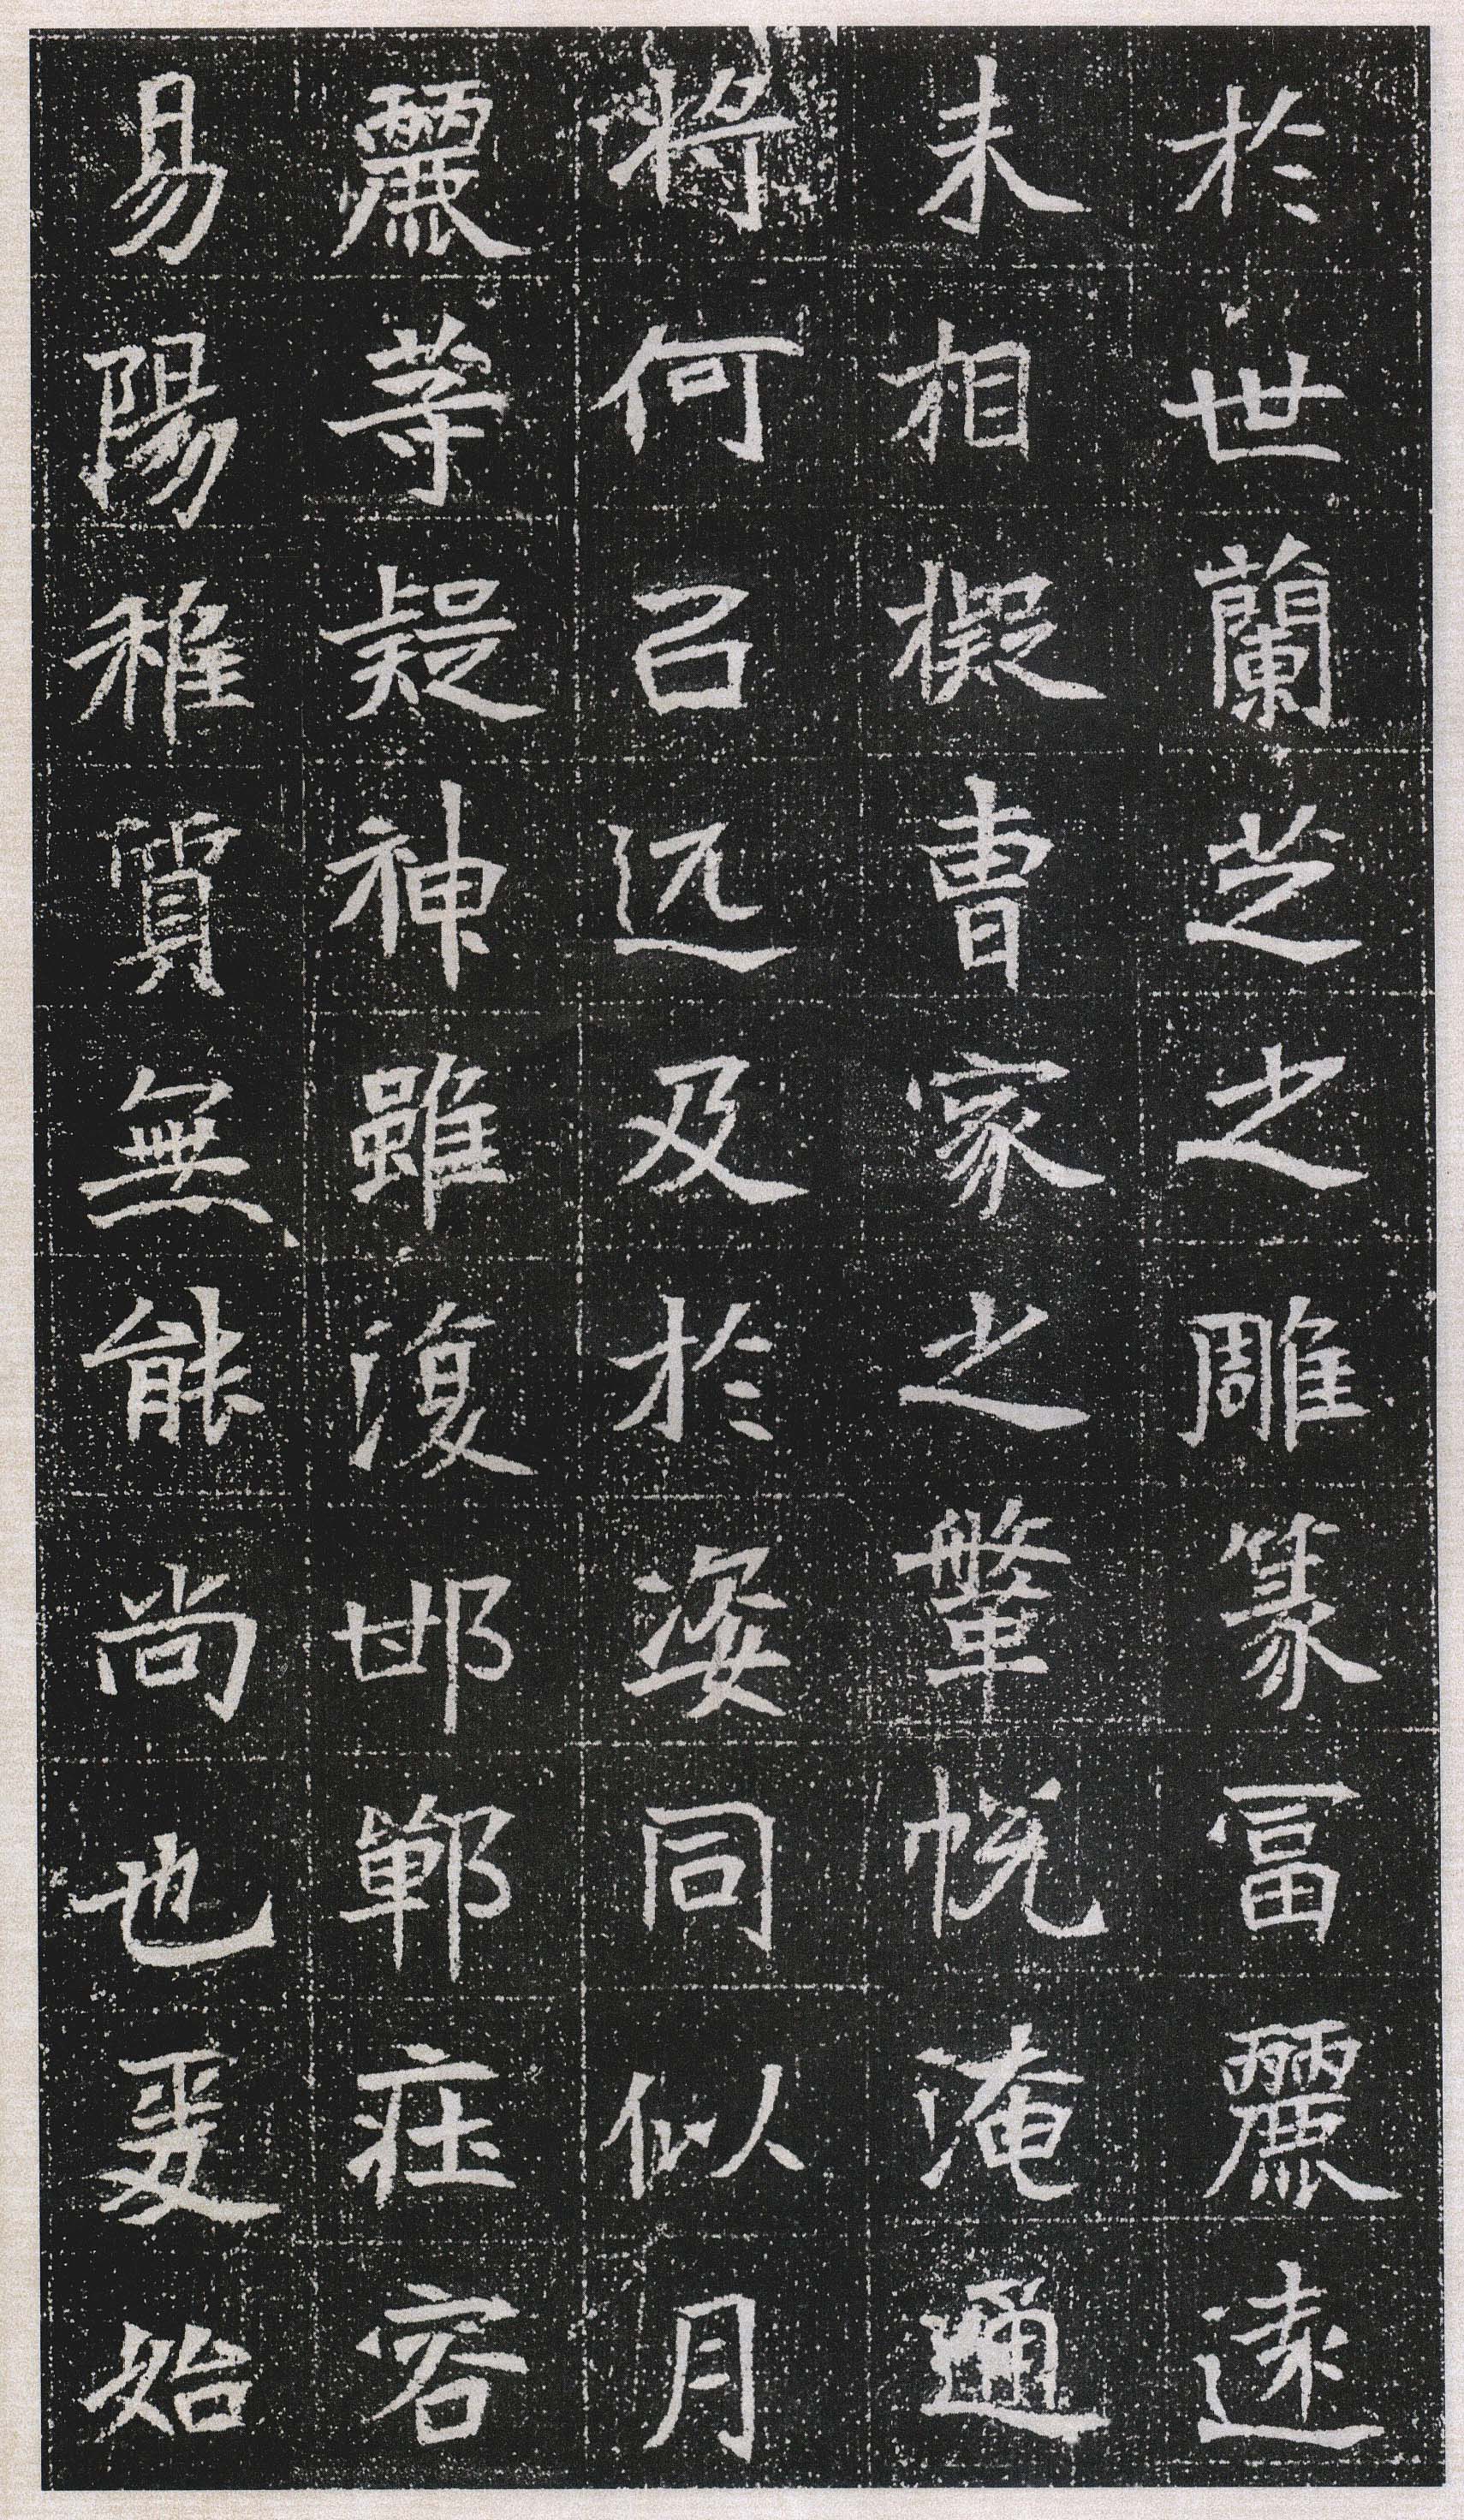 於世蘭芝之雕篆冨麗遠
未相擬曹家之鞶帨淹通
将何㠯远及於姿同似月
麗䓁疑神雖復邯鄲莊容
易陽稚質無能尚也爰始